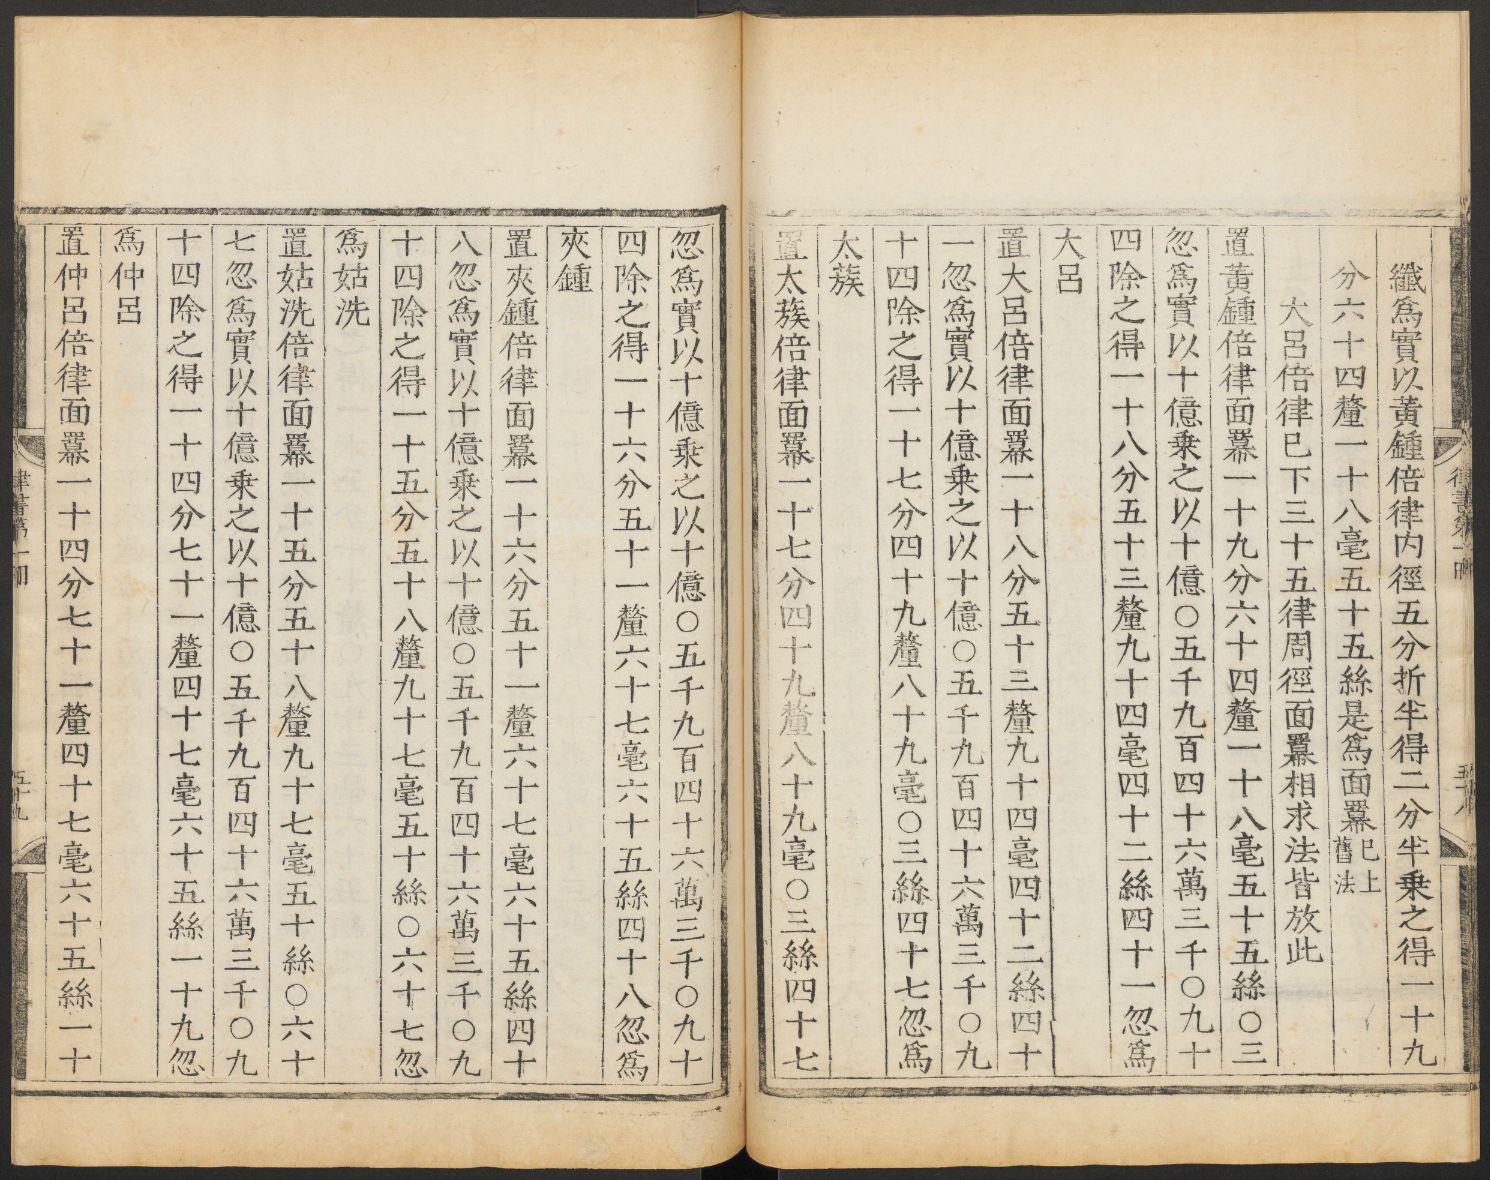 纖爲實以黃鍾倍律內徑五分折半得二分半乗之得一十九
分六十四釐一十八毫五十五絲是爲面羃巳上
舊法
大呂倍律巳下三十五律周徑面羃相求法皆放此
置黃鍾倍律面羃一十九分六十四釐一十八毫五十五絲〇三
忽爲實以十億乗之以十億〇五千九百四十六萬三千〇九十
四除之得一十八分五十三釐九十四毫四十二絲四十一忽爲
大呂
置大呂倍律面羃一十八分五十三釐九十四毫四十二絲四十
一忽爲實以十億乗之以十億〇五千九百四十六萬三千〇九
十四除之得一十七分四十九釐八十九毫〇三絲四十七忽爲
太蔟
置太蔟倍律面羃一十七分四十九釐八十九毫〇三絲四十七
律書第一冊
五十八
忽爲實以十億乗之以十億〇五千九百四十六萬三千〇九十
四除之得一十六分五十一釐六十七毫六十五絲四十八忽爲
夾鍾
置夾鍾倍律面羃一十六分五十一釐六十七毫六十五絲四十
八忽爲實以十億乗之以十億〇五千九百四十六萬三千〇九
十四除之得一十五分五十八釐九十七毫五十絲〇六十七忽
爲姑洗
置姑洗倍律面羃一十五分五十八釐九十七毫五十絲〇六十
七忽爲實以十億乗之以十億〇五千九百四十六萬三千〇九
十四除之得一十四分七十一釐四十七毫六十五絲一十九忽
爲仲呂
置仲呂倍律面羃一十四分七十一釐四十七毫六十五絲一十
律書第一冊
五十九